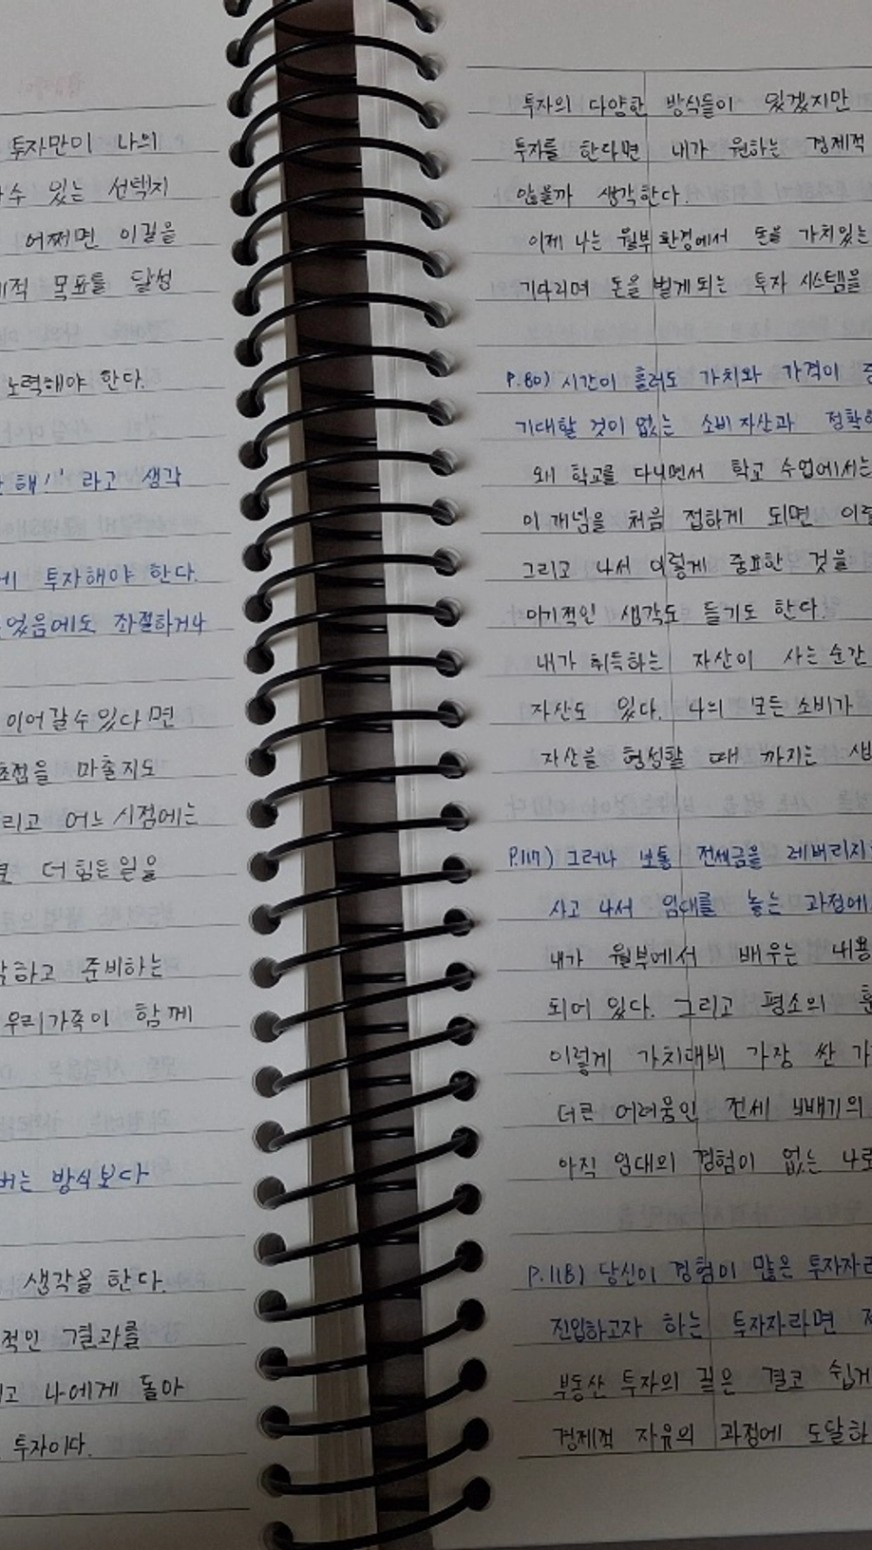 투자만이 나의
수 있는 선택지
어쩌면 이길을
적 목표를 달성
노력해야 한다.
해!' 라고 생각
에 투자해야 한다.
었음에도 좌절하거나
이어갈수있다면
초점을 마출지도
리고 어느 시점에는
더 힘든일을
하고 준비하는
우리가족이 함께
버는 방식보다
생각을 한다.
적인 결과를
고 나에게 돌아
투자이다.
투자의 다양한 방식들이 있겠지만
투자를 한다면 내가 원하는 경제적
않을까 생각한다.
이제 나는 월부환경에서 돈을 가치있는
기다리며 돈을 벌게되는 투자 시스템을
P.80) 시간이 흘러도 가치와 가격이
기대할 것이 없는 소비자산과 정확히
왜 학교를 다니면서 학교 수업에서는
이 개념을 처음 접하게 되면 이렇
그리고 나서 이렇게 중요한 것을
이기적인 생각도 들기도 한다.
내가 취득하는 자산이 사는순간
자산도 있다. 나의 모든소비가
자산을 형성할 때 까지는 생
P.117) 그러나 보통 전세금을 레버리지
사고 나서 임대를 놓는 과정에
내가 월부에서 배우는 내용
되어 있다. 그리고 평소의 훈
이렇게 가치대비 가장 싼 가
더큰 어려움인 전세 빼기의
아직 임대의 경험이 없는 나로
P.118) 당신이 경험이 많은 투자자라
진입하고자 하는 투자자라면
부동산 투자의 길은 결코 쉽게
경제적 자유의 과정에 도달하